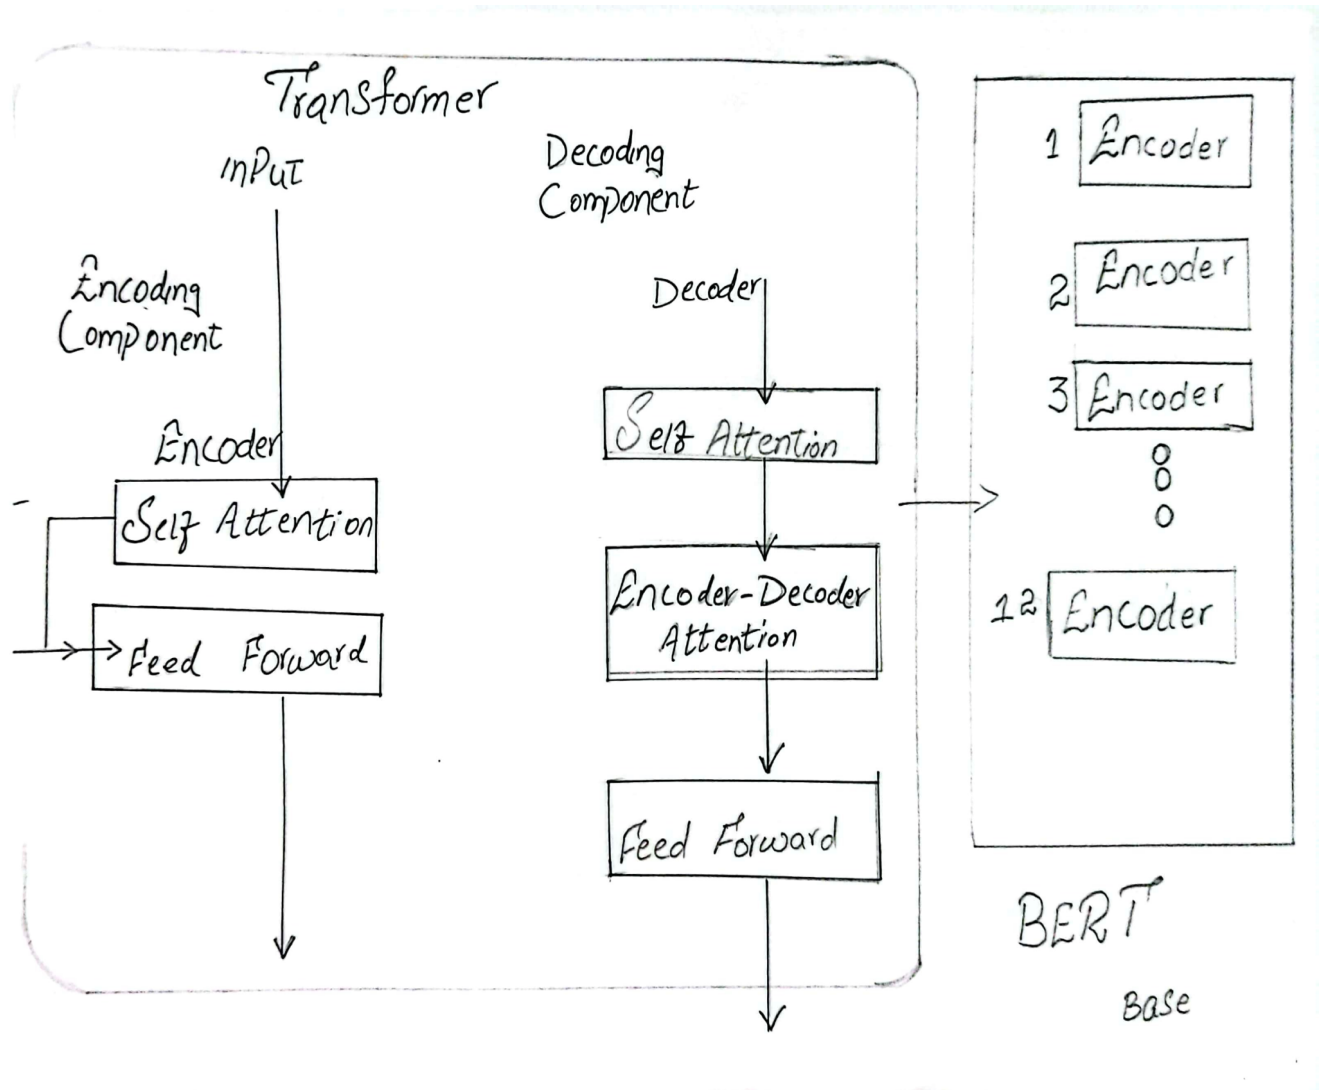 Transformer
INPUT
Encoding
Component
Encoder
Self Attention
Feed Forward
Decoding
Component
Decoder
Self Attention
Encoder-Decoder
Attention
Feed Forward
1 Encoder
2 Encoder
3 Encoder
12 Encoder
BERT
Base